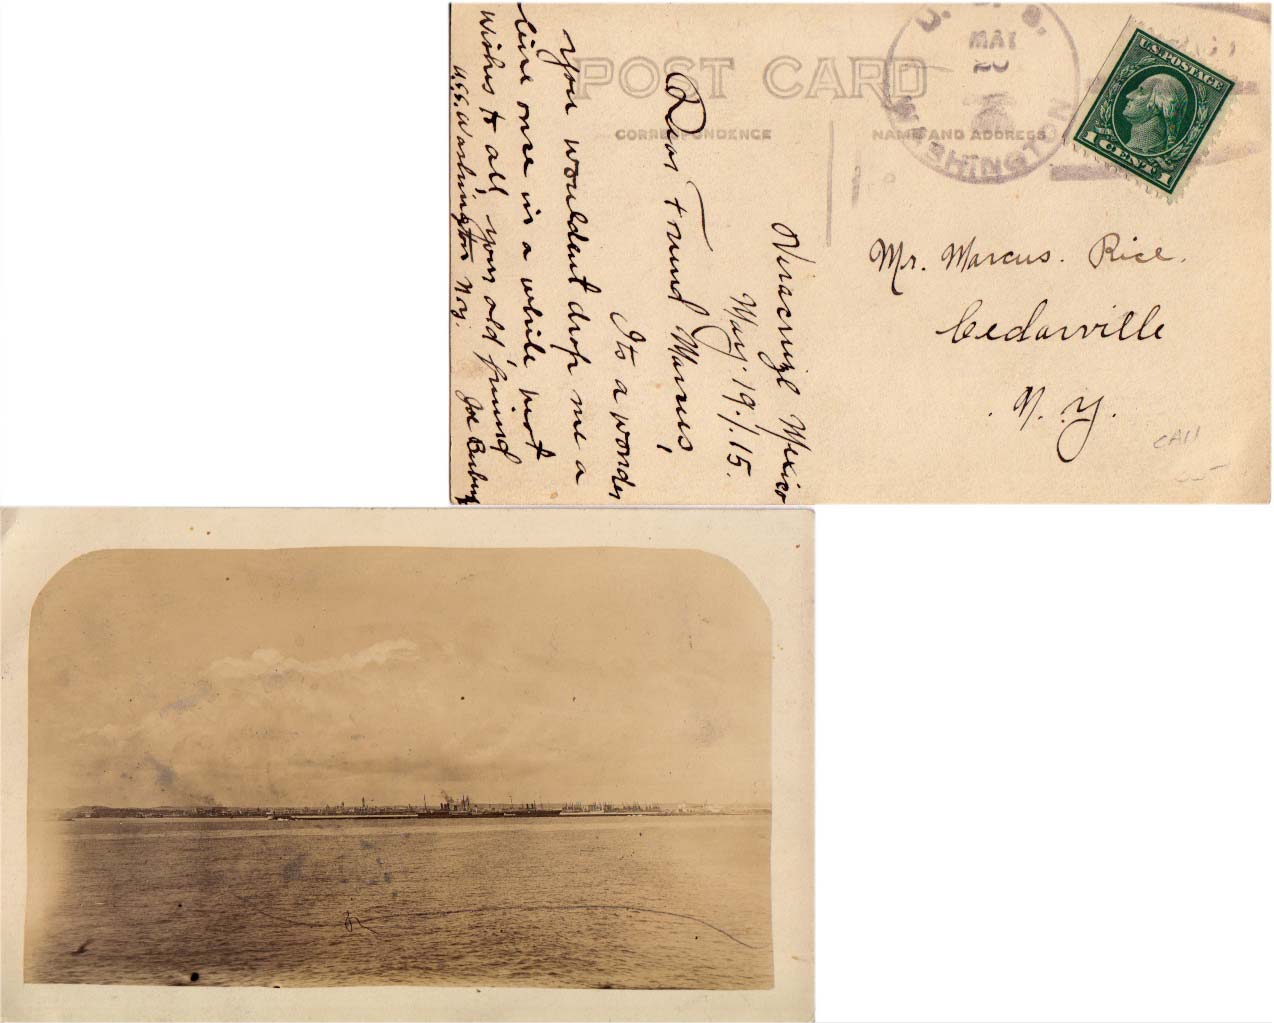 POST CARD
CORRESPONDENCE
NAME AND ADDRESS
U. S. S.
MAY
WASHINGTON
U.S. POSTAGE
1 CENT 1
Veracruz Mexico
May. 19./15.
Dear Friend Marcus,
Its a wonder
you wouldent drop me a
line once in a while best
wishes to all, your old friend
U.S.S. Washington N.Y. Joe
Mr. Marcus. Rice.
Cedarville
. N. Y.